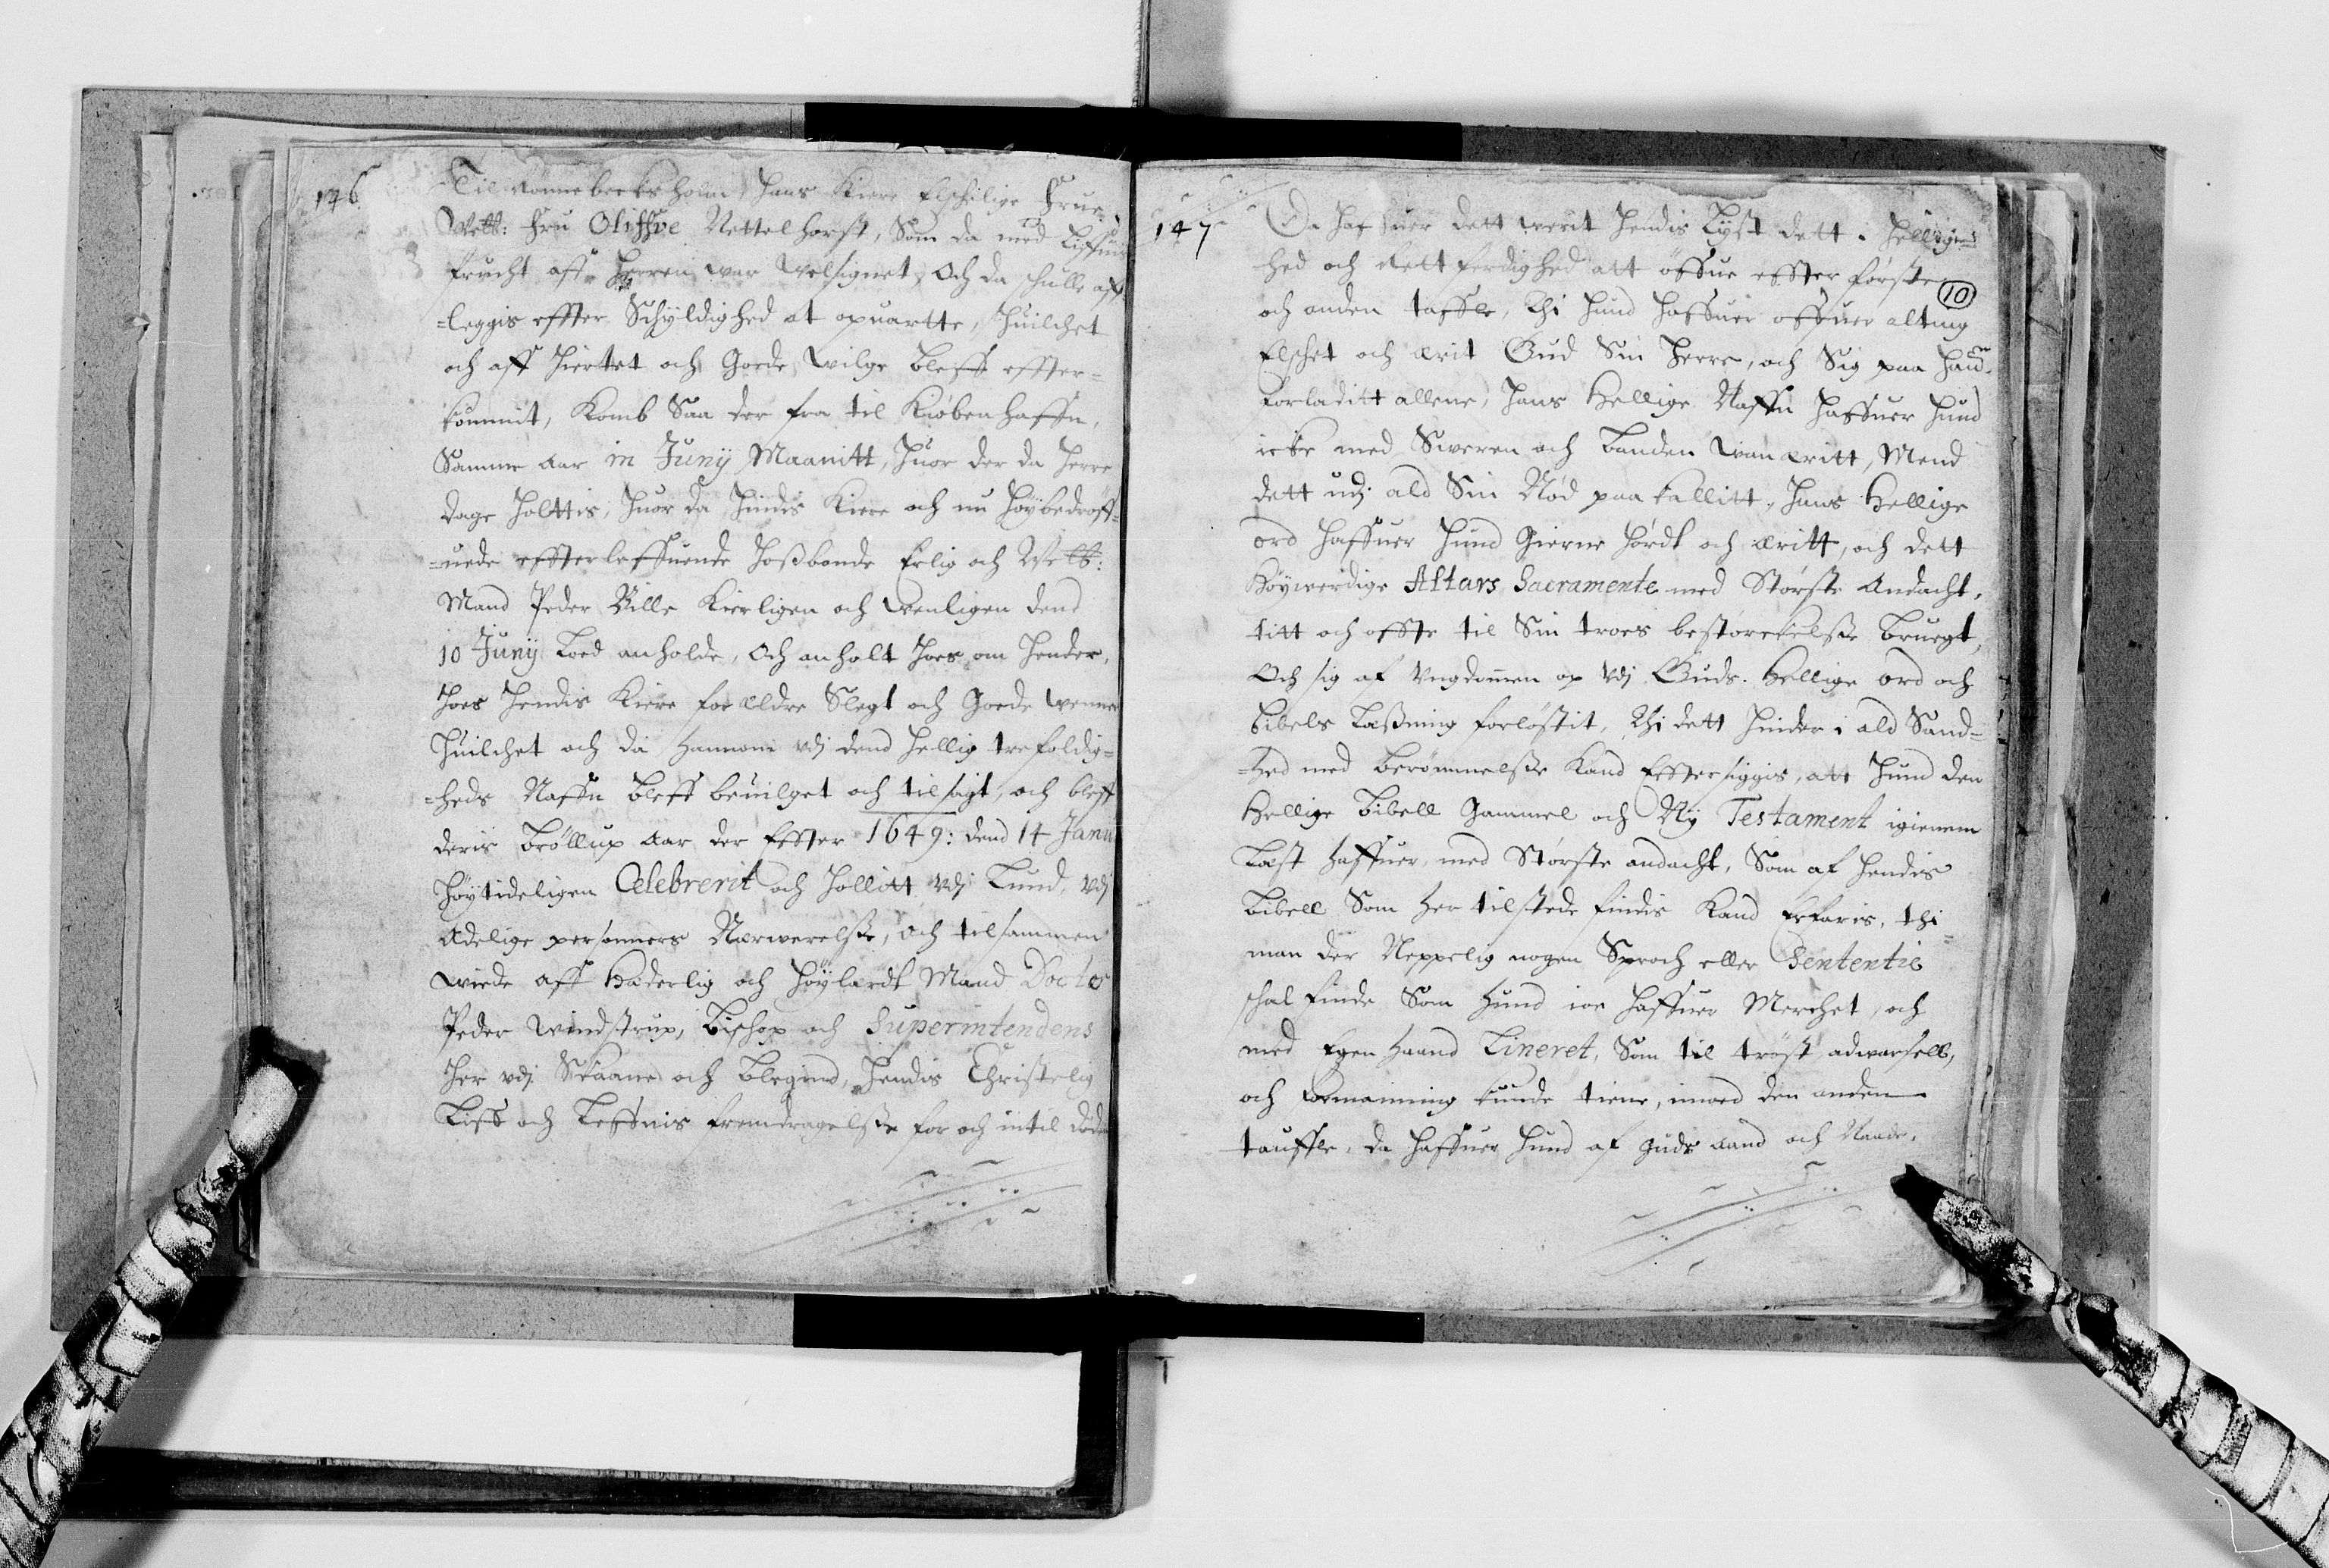 146
Til Rønnebecksholm hans Kiere Elschelige Frue
Welb: Fru Oliffve Nettelhorst, Som da med Liffuis
frucht aff Herren war Velsignet, Och da schulle aff
=leggis effter Schyldighed at opuartte, huilchet
och aff hiertet och Goede Wilge bleff effter=
kommit, Komb Saa der fra til Kiøbenhaffn,
Samme Aar in Junij Maanitt, huor der da Herre
dage holttis, huor da hindis Kiere och nu høybedrøff=
=uede effterleffuende Hoßbonde Erlig och Welb:
Mand Peder Bille Kierligen och Venligen dend
10 Junij Loed anholde, Och anholt hoes om hender,
hoes hendis Kiere forældre Slegt och Goede Venner
huilchet och da hannom vdj dend hellig trefoldig=
=heds Naffn bleff beuilget och tilsagt, och bleff
deris brøllup Aar der Effter 1649: dend 14 Janu
høytideligen Celebrerit och hollitt vdj Lund, vdj
Adelige personners Nærwerelsse, och tilsammen
wiede aff Hæderlig och Høylærdt Mand Doctor
Peder Windstrup, Bischop och Superintendens
her vdj Skaane och Blegind, Hendis Christelig
Liff och Leffnis fremdragelsse for och intil døden
147
Da haffuer dett werit hendis Lyst dett i hellig=
hed och Rettferdighed att øffue effter første
10
och anden taffle, Thi hund haffuer offuer alting
Elschet och ærit Gud Sin Herre, och Sig paa hannem
forladitt allene, hans Hellige Naffn haffuer hund
icke med Sweren och banden wanæritt, Mend
dett udj ald Sin Nød paakallitt, hans Hellige
ord haffuer hund Gierne hørdt och æritt, och dett
Høywerdige Altars Sacramente med Største Andacht,
titt och offte til Sin troes bestørckelsse bruegt,
Och sig af Vngdommen op vdj Guds Hellige ord och
bibels Læßning forløstit, Thi dett hinder i ald Sand=
=hed med berømmelsse Kand Efftersiggis, att hund den
Hellige Bibell Gammel och Ny Testament igienem
Læst haffuer, med Største andacht, Som af hendis
Bibell Som her tilstede findis Kand Erfaris, thi
man der Neppelig nogen Sproch eller Sententie
schal finde Som hund ioe haffuer Merchet, och
med Egen haand Lineret, Som til trøst adwarsell,
och formaning kunde tiene, imoed den anden
tauffle, da haffuer hund af Guds aand och Naade,